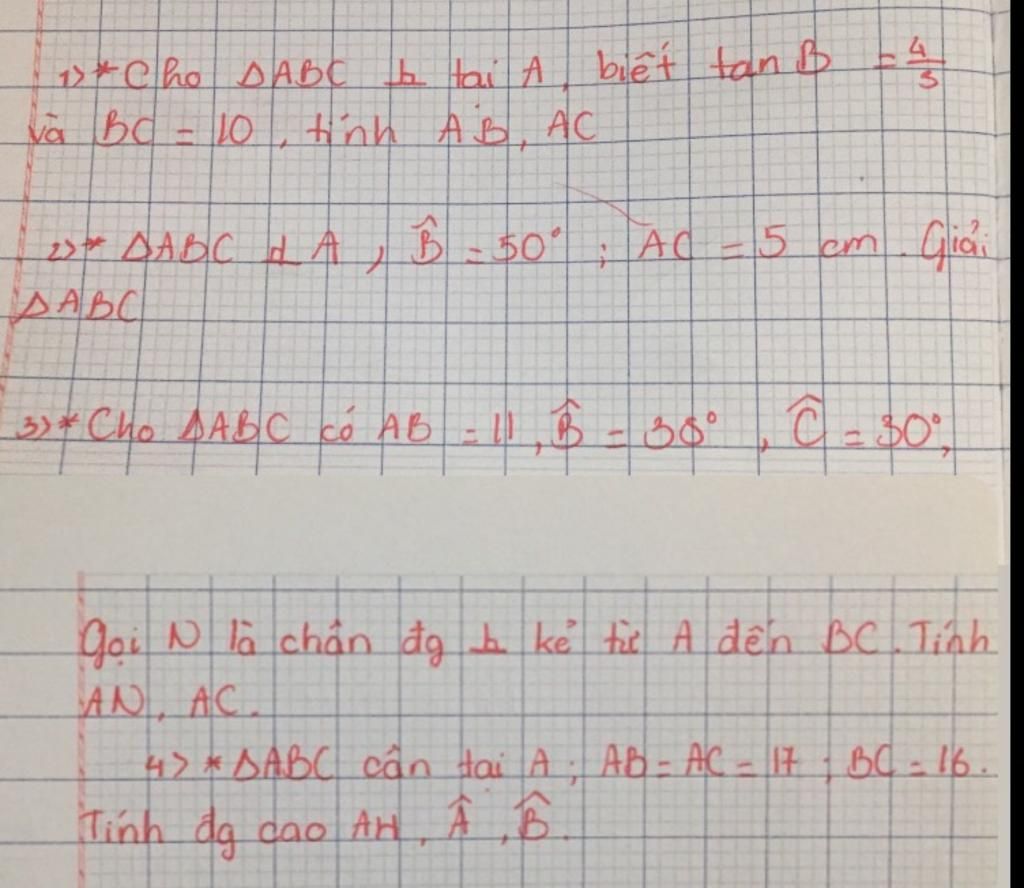 1) * Cho ΔABC ⊥ tại A, biết tan B = 4/3
và BC = 10, tính AB, AC
2) * ΔABC ⊥ A, B̂ = 50°; AC = 5 cm. Giải
ΔABC
3) * Cho ΔABC có AB = 11, B̂ = 38°, Ĉ = 30°,
Gọi N là chân đg ⊥ kẻ từ A đến BC. Tính
AN, AC.
4) * ΔABC cân tại A; AB = AC = 17; BC = 16.
Tính đg cao AH, Â, B̂.